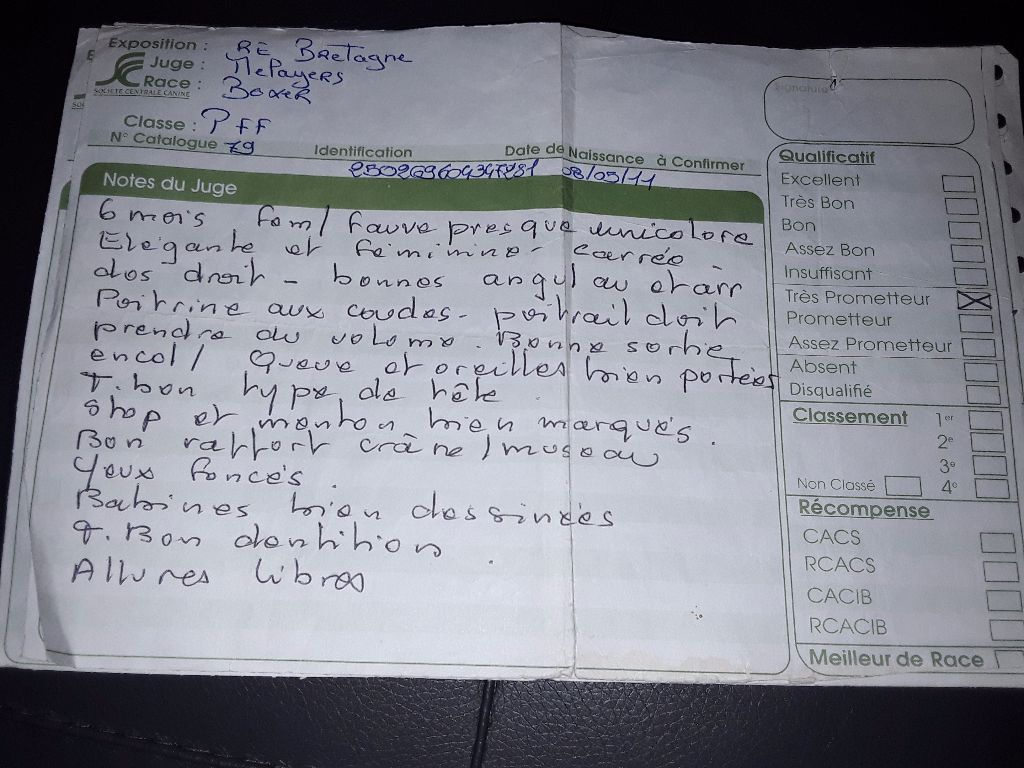 Exposition : RE Bretagne
Juge : Mr Payers
Race : Boxer
SOCIETE CENTRALE CANINE
Classe : PFF
N° Catalogue 79
Identification
Date de Naissance à Confirmer
08/05/11
Signature
Notes du Juge
6 mois fem/ fauve presque unicolore
Elegante et féminine - carrée -
dos droit - bonnes angul av et arr
Poitrine aux coudes - poitrail doit
prendre du volume. Bonne sortie
encol/ Queue et oreilles bien portées
T. bon type de tête.
Stop et menton bien marqués.
Bon rapport crâne/museau
Yeux foncés.
Babines bien dessinées
T. Bon dentition
Allures libres
Qualificatif
Excellent
Très Bon
Bon
Assez Bon
Insuffisant
Très Prometteur
Prometteur
Assez Prometteur
Absent
Disqualifié
Classement 1er
2e
3e
Non Classé 4e
Récompense
CACS
RCACS
CACIB
RCACIB
Meilleur de Race